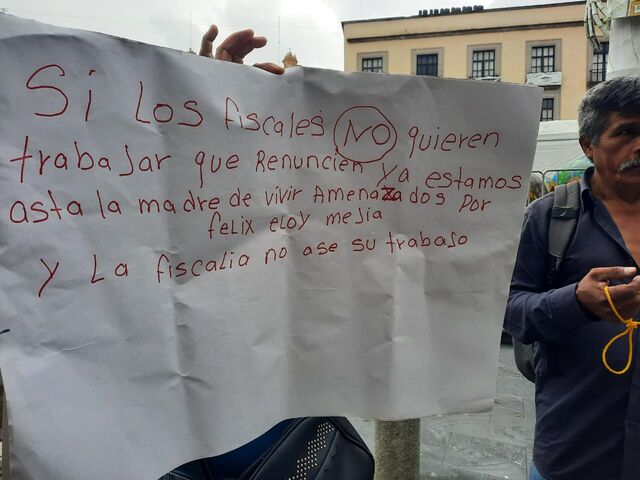 Si Los fiscales NO quieren
trabajar que Renuncien Ya estamos
asta la madre de vivir Amenazados por
felix eloy mejia
y La fiscalia no ase su trabajo